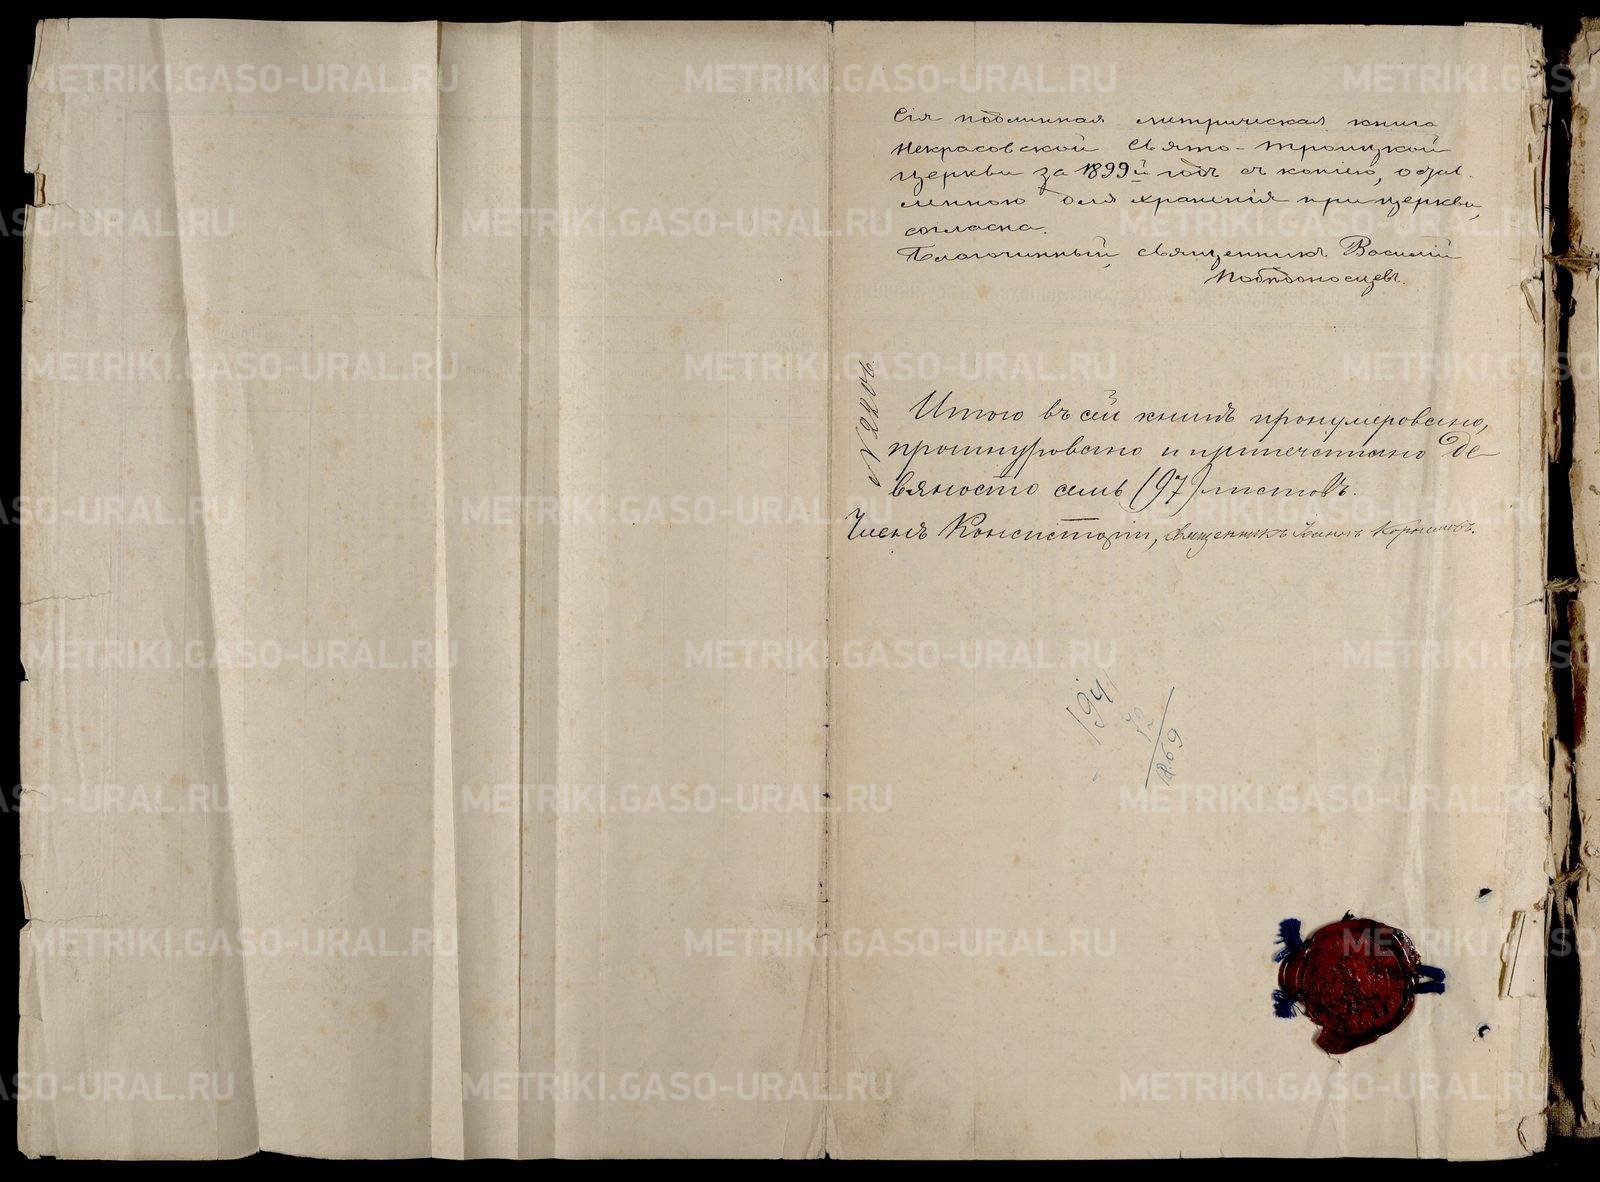 Сія подлинная метрическая книга
Некрасовской Свято-Троицкой
церкви за 1899й годъ съ копіею, остав-
ленною для храненія при церкви,
согласна.
Благочинный, священникъ Василій
Побѣдоносцевъ.
№ 2206.
Итого въ сей книгѣ пронумеровано,
прошнуровано и припечатано де-
вяносто семь (97) листовъ.
Членъ Консисторіи, священникъ Іоаннъ
194
72
1869
METRIKI.GASO-URAL.RU